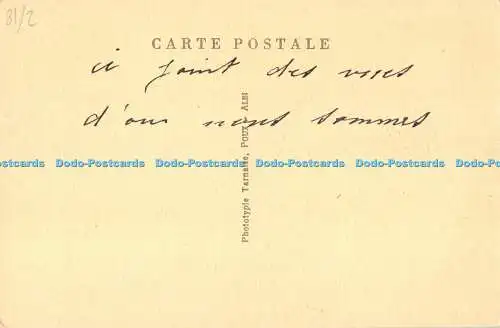 31/2
CARTE POSTALE
ci joint des vues
d'où nous sommes
Dodo-Postcards Dodo-Postcards Dodo-Postcards Dodo-Postcards Dodo-Postcards Dodo-Postcards
Phototypie Tarnaise, POUX, ALBI